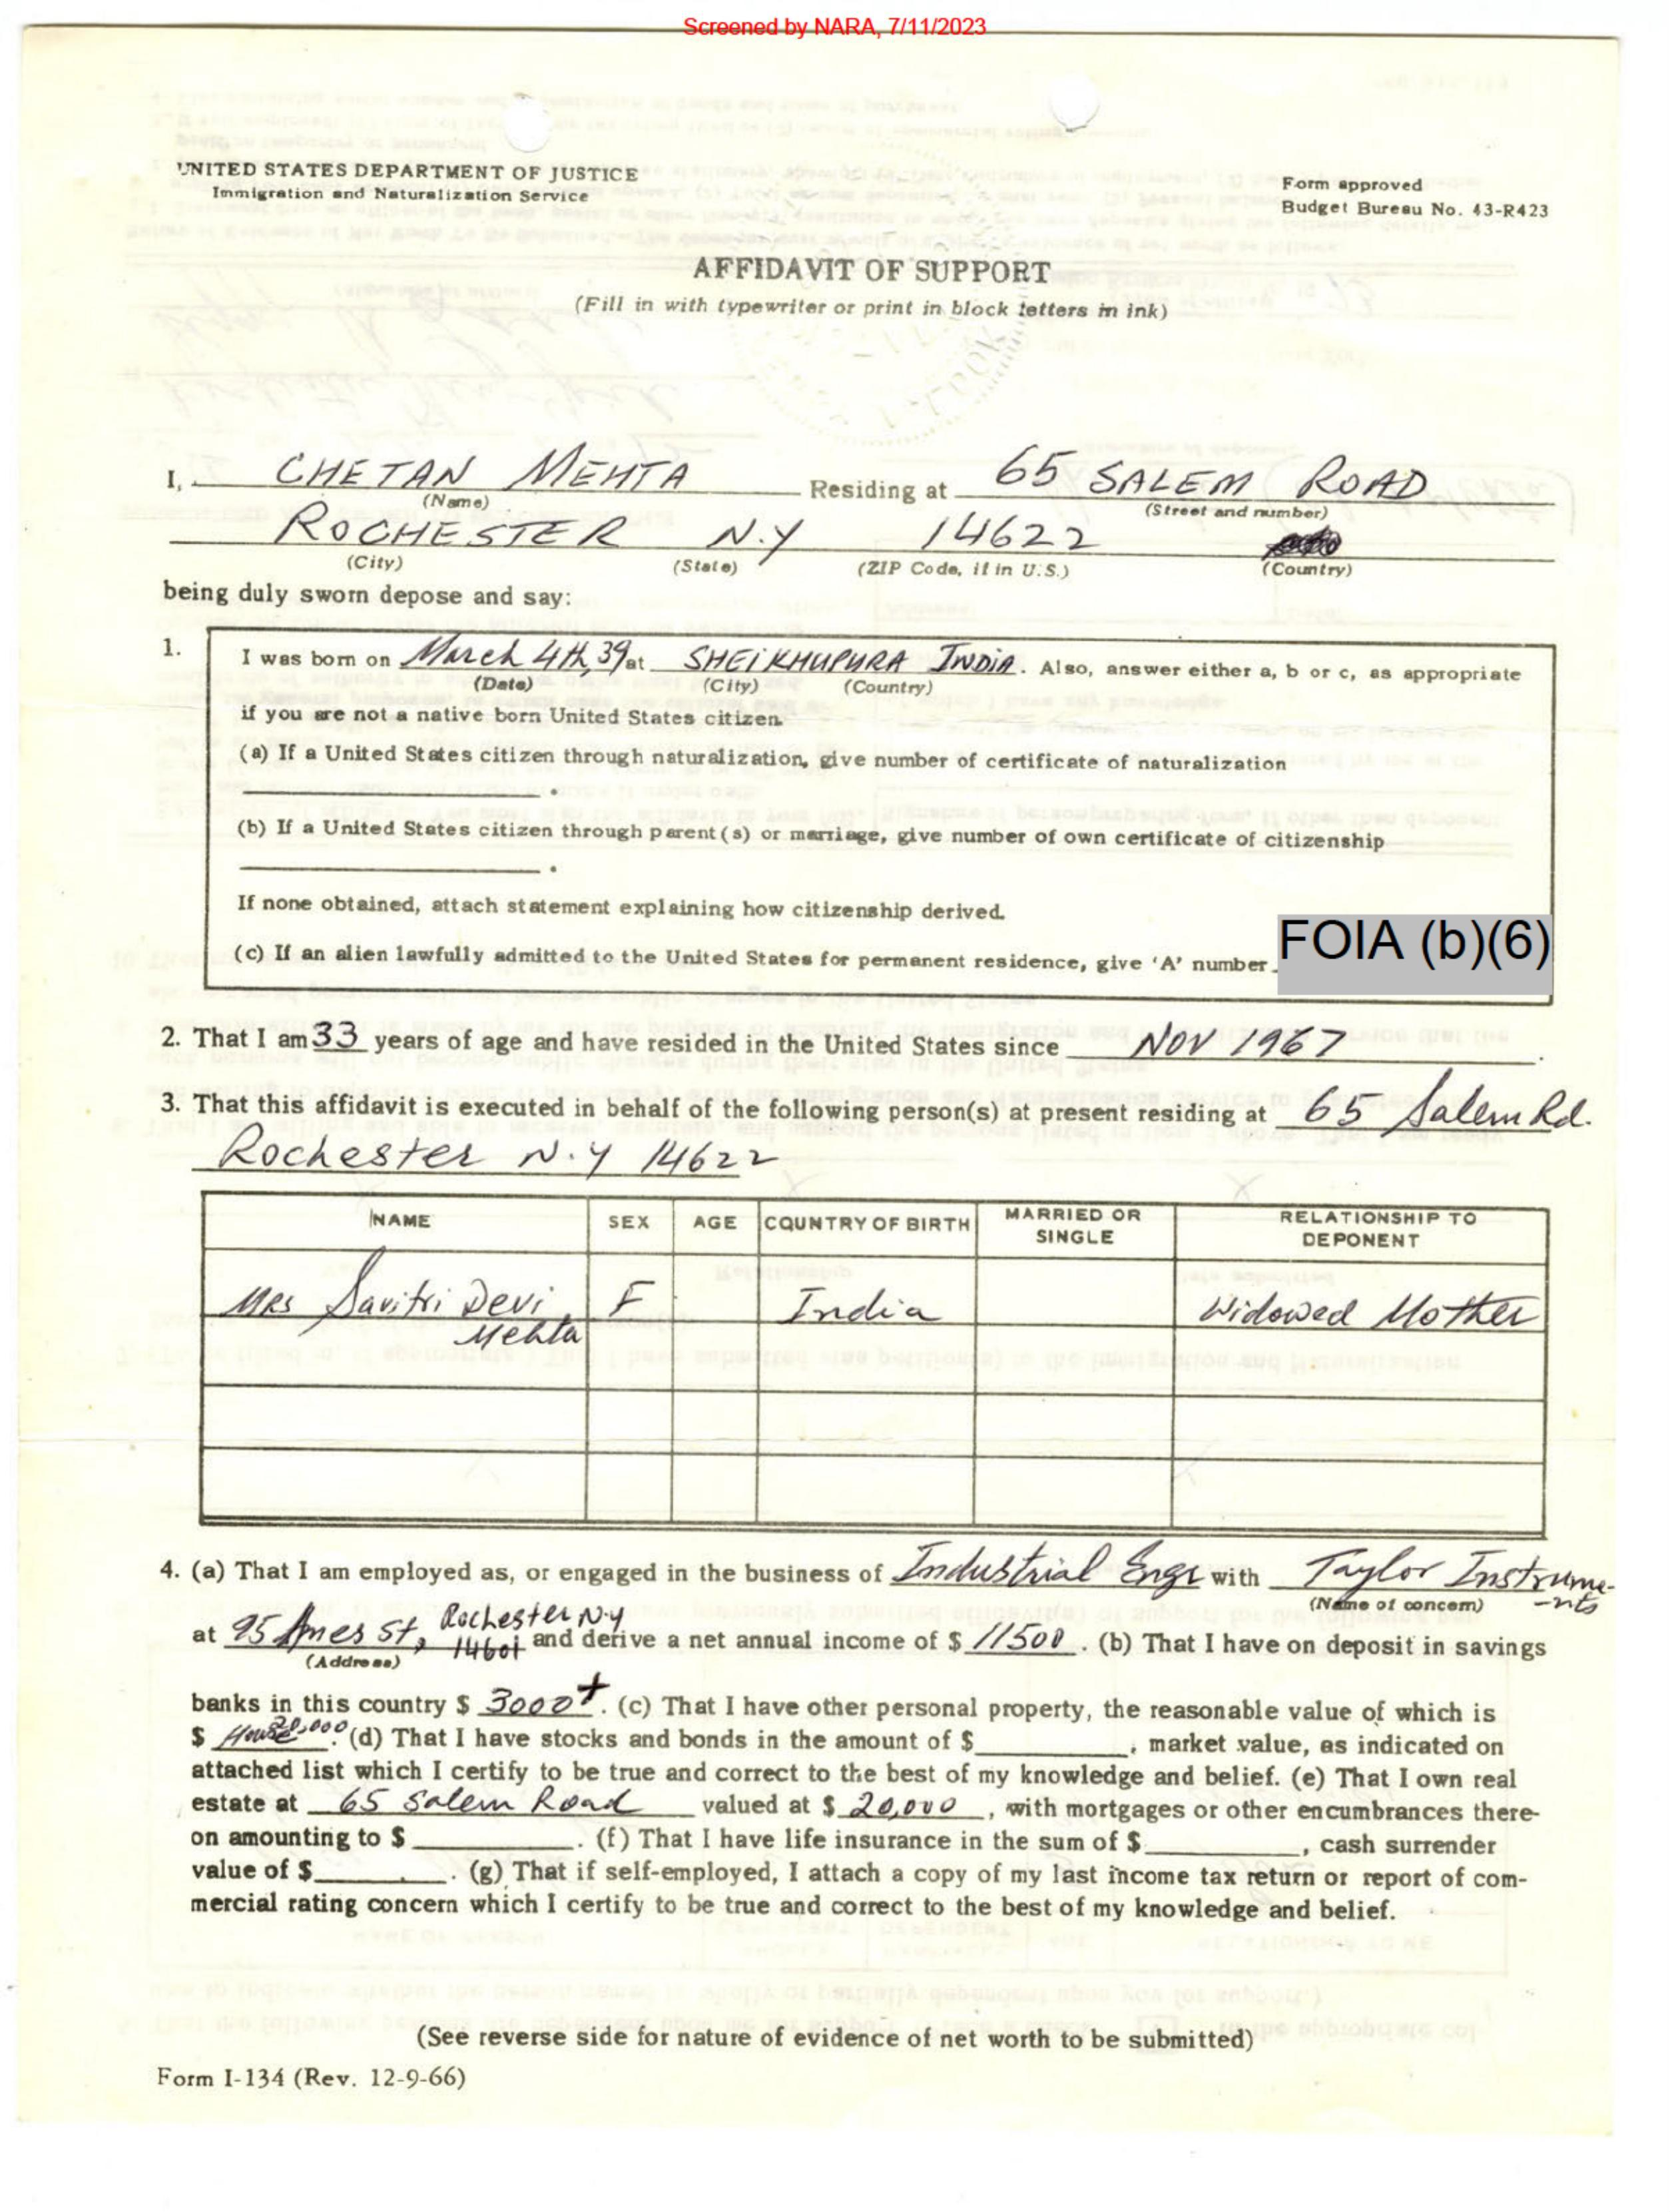 Screened by NARA, 7/11/2023
UNITED STATES DEPARTMENT OF JUSTICE
Immigration and Naturalization Service
Form approved
Budget Bureau No. 43-R423
AFFIDAVIT OF SUPPORT
(Fill in with typewriter or print in block letters in ink)
I, CHETAN MEHTA Residing at 65 SALEM ROAD
(Name) (Street and number)
ROCHESTER N.Y 14622
(City) (State) (ZIP Code, if in U.S.) (Country)
being duly sworn depose and say:
1. I was born on March 4th, 39 at SHEIKHUPURA INDIA. Also, answer either a, b or c, as appropriate
(Date) (City) (Country)
if you are not a native born United States citizen.
(a) If a United States citizen through naturalization, give number of certificate of naturalization
.
(b) If a United States citizen through parent(s) or marriage, give number of own certificate of citizenship
.
If none obtained, attach statement explaining how citizenship derived.
(c) If an alien lawfully admitted to the United States for permanent residence, give 'A' number FOIA (b)(6)
2. That I am 33 years of age and have resided in the United States since NOV 1967.
3. That this affidavit is executed in behalf of the following person(s) at present residing at 65 Salem Rd.
Rochester N.Y 14622
NAME SEX AGE COUNTRY OF BIRTH MARRIED OR SINGLE RELATIONSHIP TO DEPONENT
Mrs Savitri Devi F India Widowed Mother
Mehta
4. (a) That I am employed as, or engaged in the business of Industrial Engr with Taylor Instrume-
(Name of concern) -nts
at 95 Ames St, Rochester N.Y 14601 and derive a net annual income of $ 11500. (b) That I have on deposit in savings
(Address)
banks in this country $ 3000+. (c) That I have other personal property, the reasonable value of which is
$ House 20,000. (d) That I have stocks and bonds in the amount of $ , market value, as indicated on
attached list which I certify to be true and correct to the best of my knowledge and belief. (e) That I own real
estate at 65 Salem Road valued at $ 20,000, with mortgages or other encumbrances there-
on amounting to $ . (f) That I have life insurance in the sum of $ , cash surrender
value of $ . (g) That if self-employed, I attach a copy of my last income tax return or report of com-
mercial rating concern which I certify to be true and correct to the best of my knowledge and belief.
(See reverse side for nature of evidence of net worth to be submitted)
Form I-134 (Rev. 12-9-66)